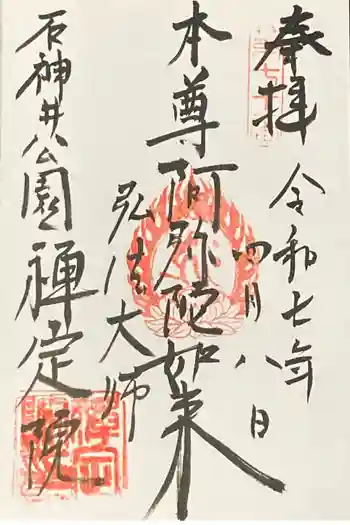 奉拝
令和七年
四月八日
本尊阿弥陀如来
弘法大師
石神井公園
禅定院